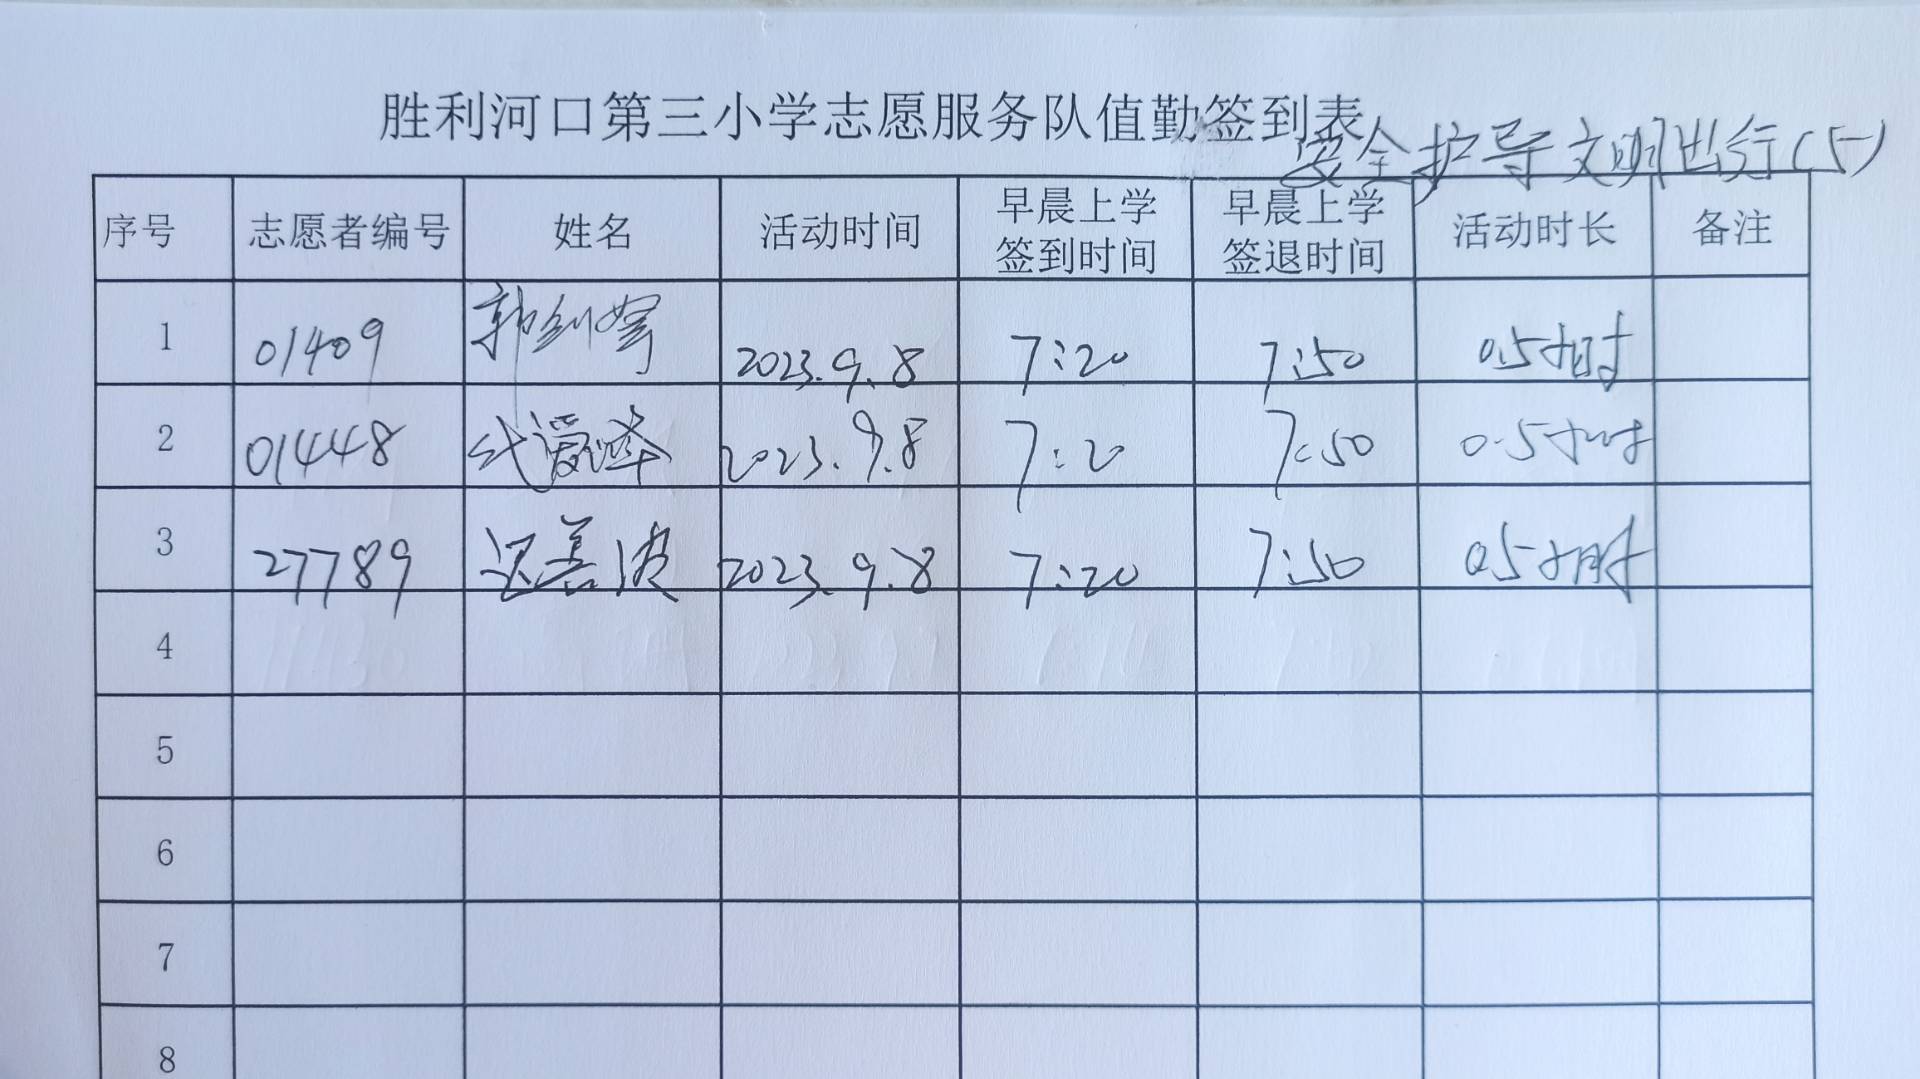 胜利河口第三小学志愿服务队值勤签到表
安全护导 文明出行(5)
序号 志愿者编号 姓名 活动时间 早晨上学签到时间 早晨上学签退时间 活动时长 备注
1 01409 2023.9.8 7:20 7:50 0.5小时
2 01448 代爱萍 2023.9.8 7:20 7:50 0.5小时
3 27789 2023.9.8 7:20 7:50 0.5小时
4
5
6
7
8